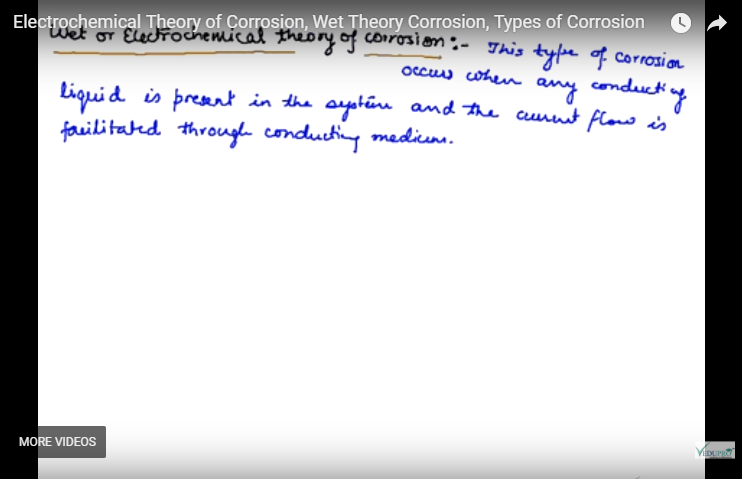 Electrochemical Theory of Corrosion, Wet Theory Corrosion, Types of Corrosion
Wet or Electrochemical theory of corrosion :- This type of corrosion
occurs when any conducting
liquid is present in the system and the current flow is
facilitated through conducting medium.
MORE VIDEOS
VEDUPRO